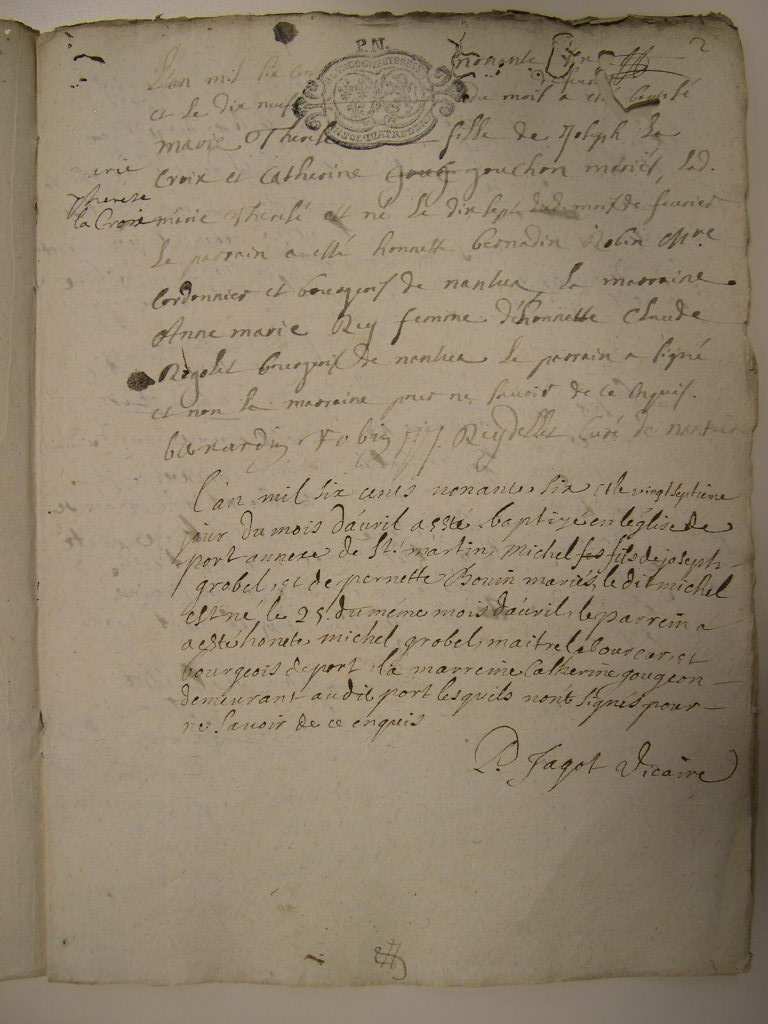 P.N. 2
L'an mil six nonante
et le dix neuf du mois a esté baptisé
marie Therese fille de Joseph la
Croix et Catherine gouchon mariés, lad.
marie
Therese
la Croix
marie therese est né le dix sept dud. mois de feurier
le parrain a esté honnette bernadin Robin Mre
Cordonnier et bourgeois de nantua, la marraine
Anne marie Rey femme d'honnette Claude
bourgeois de nantua le parrain a signé
et non la marraine pour ne scavoir de ce enquis.
bernardin robin J Reydellet Curé de nantua
L'an mil six cents nonante six et le vingt septieme
jour du mois dauril a esté baptizé en l'eglise de
port annexe de St. martin, michel fils de joseph
grobel, et de pernette Bouin mariés, le dit michel
est né le 25. du meme mois dauril, le parrein a
esté honete michel grobel, maitre labourеur, et
bourgeois de port, la marreine Catherine gougeon
demeurant audit port lesquils nont signés pour
ne scavoir de ce enquis
P. Jagot Vicaire